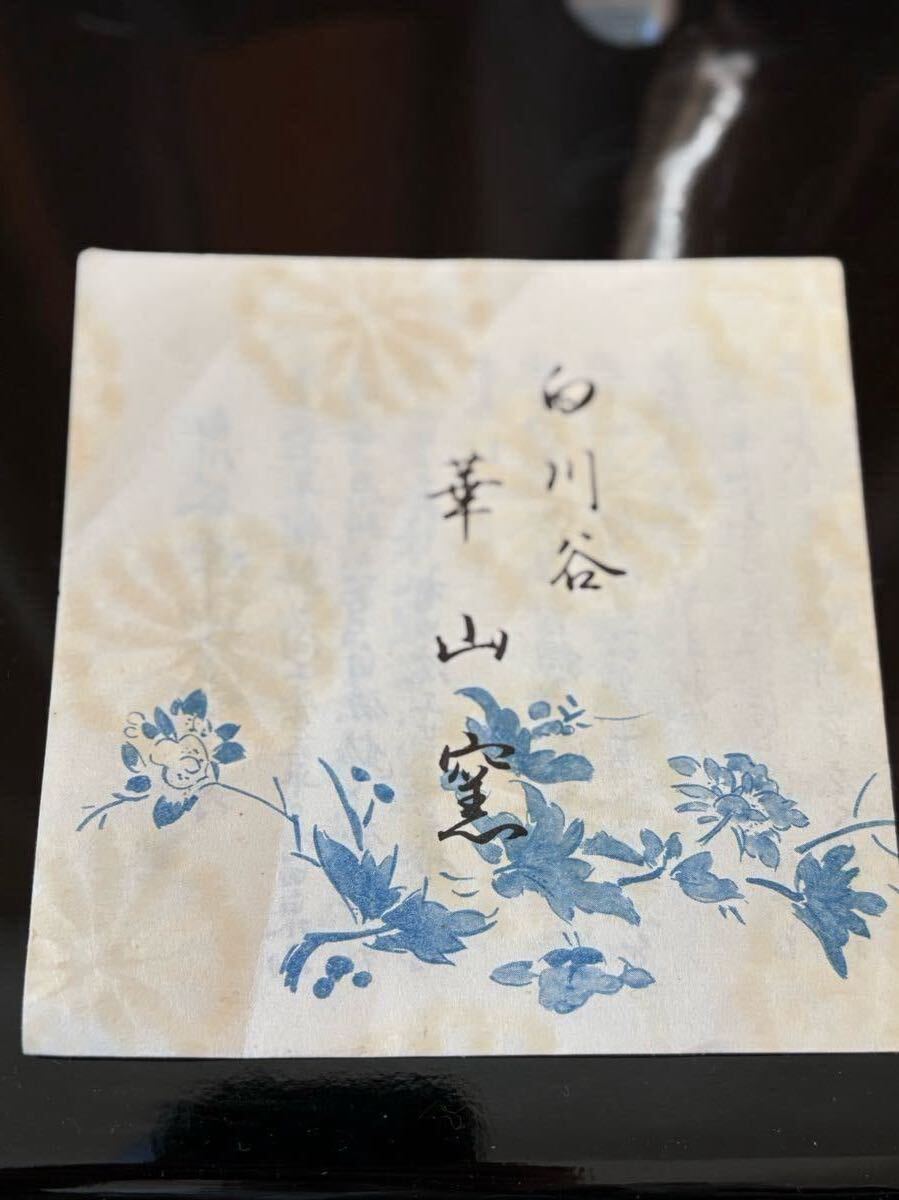 白川谷
華山窯